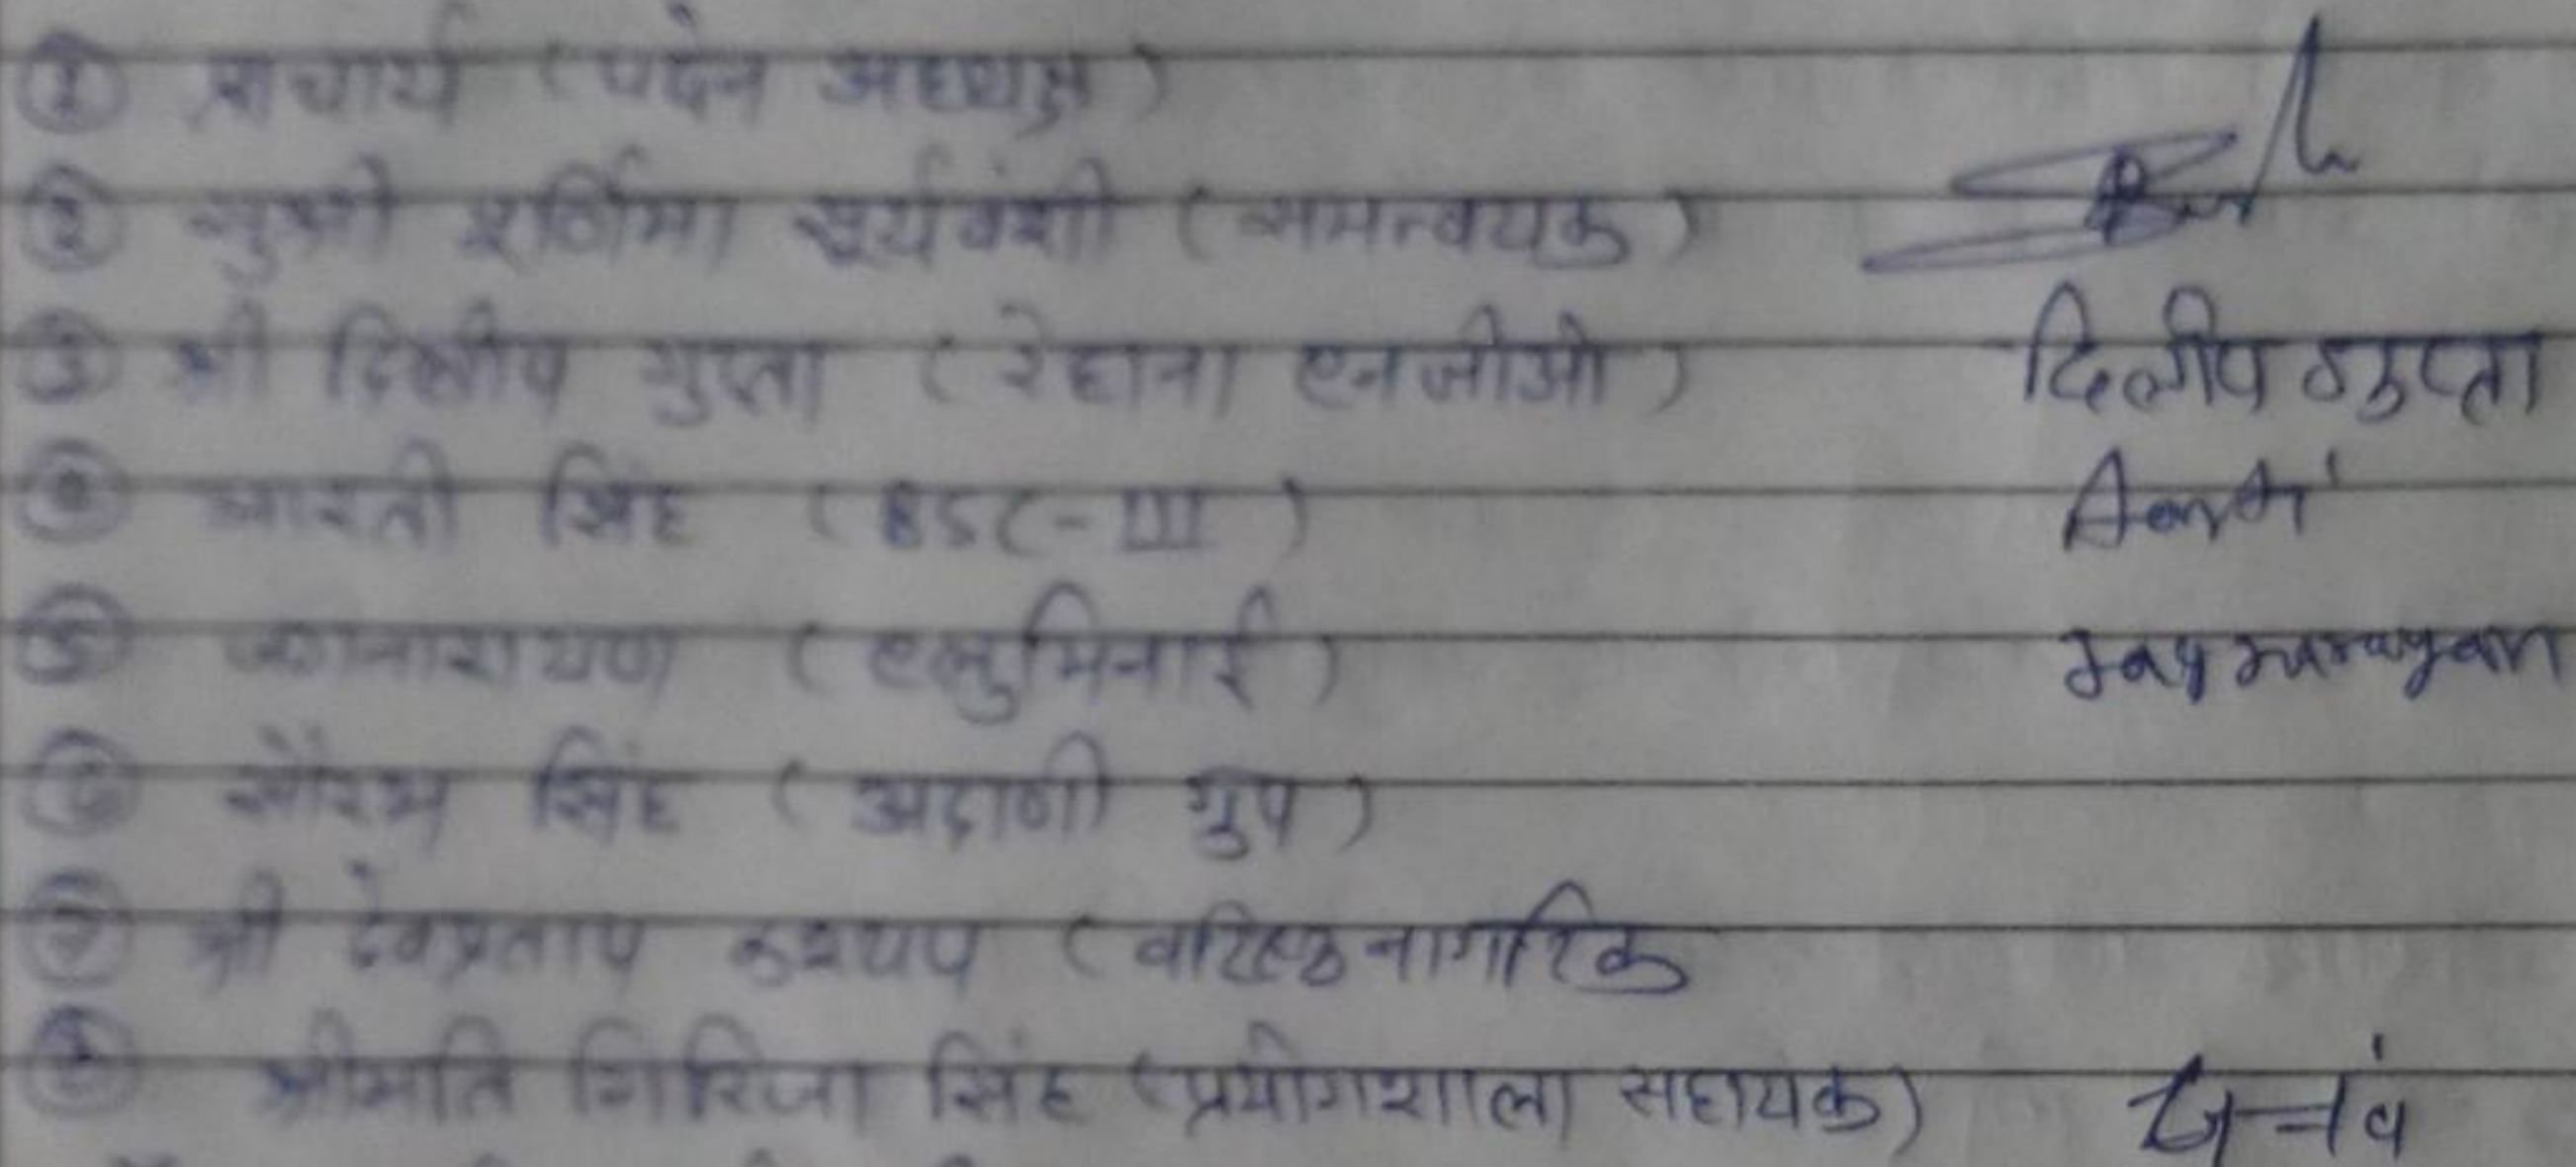 ① प्राचार्य (पदेन अध्यक्ष)
② सुश्री सूर्यवंशी (समन्वयक)
③ श्री दिलीप गुप्ता (रेहाना एनजीओ) दिलीप गुप्ता
④ आरती सिंह (BSC-III) Aarti
⑤ जयनारायण (एलुमिनाई) Jaynarayan
⑥ सौरभ सिंह (अदाणी ग्रुप)
⑦ श्री देवप्रताप कश्यप (वरिष्ठ नागरिक
⑧ श्रीमति गिरिजा सिंह (प्रयोगशाला सहायक)